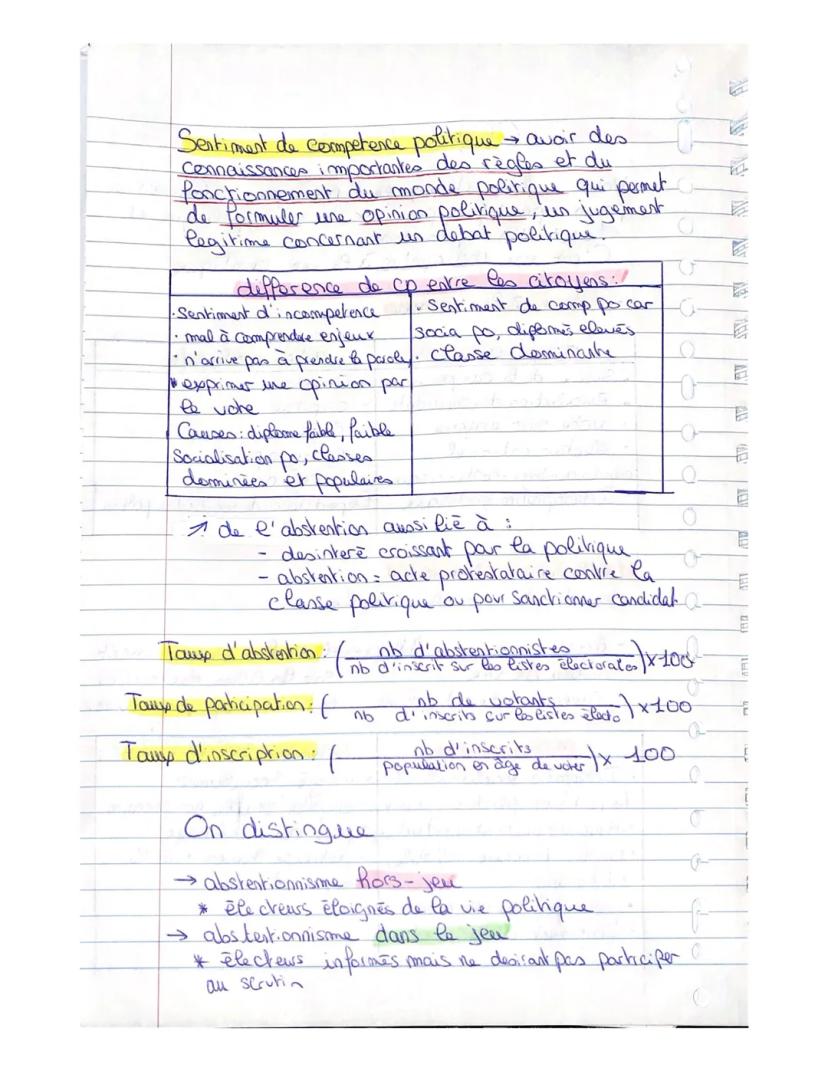 Sentiment de competence politique → avoir des
connaissances importantes des règles et du
fonctionnement du monde politique qui permet
de formuler une opinion politique, un jugement
legitime concernant un debat politique.
difference de cp entre les citoyens :
· Sentiment d'incompetence
· mal à comprendre enjeux
· n'arrive pas à prendre la parole,
* exprimer une opinion par
le vote
Causes : diplome faible, faible
Socialisation po, classes
dominées et populaires
· Sentiment de comp po car
socia po, diplomés elevés
· Classe dominante
↗ de l'abstention aussi lié à :
- desinteré croissant par la politique
- abstention = acte protestataire contre la
classe politique ou pour sanctionner candidat
Taux d'abstention : ( nb d'abstentionnistes
nb d'inscrit sur les listes électorales ) x 100
Taux de participation : ( nb de votants
nb d'inscrits sur les listes électo ) x 100
Taux d'inscription : ( nb d'inscrits
population en âge de voter ) x 100
On distingue
→ abstentionnisme hors-jeu
* électeurs éloignés de la vie politique
→ abstentionnisme dans le jeu
* électeurs informés mais ne desirant pas participer
au scrutin